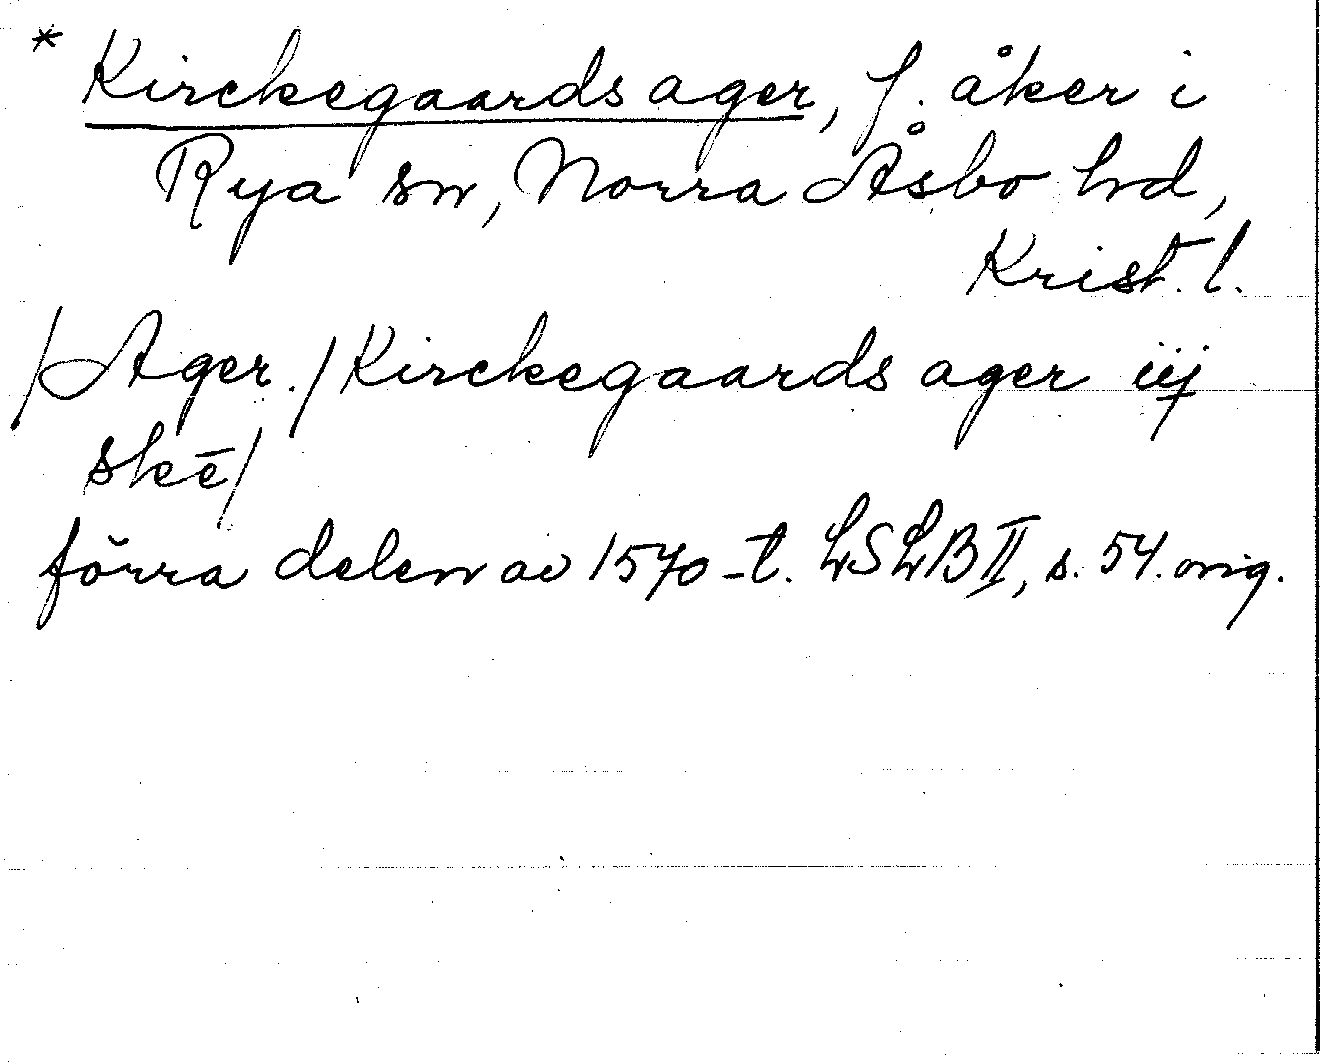 * Kirckegaards ager, f. åker i
Rya sn, Norra Åsbo hd,
Krist. l.
/Ager./Kirckegaards ager iij
skē/
förra delen av 1570-t. LSLB II, s. 54. orig.